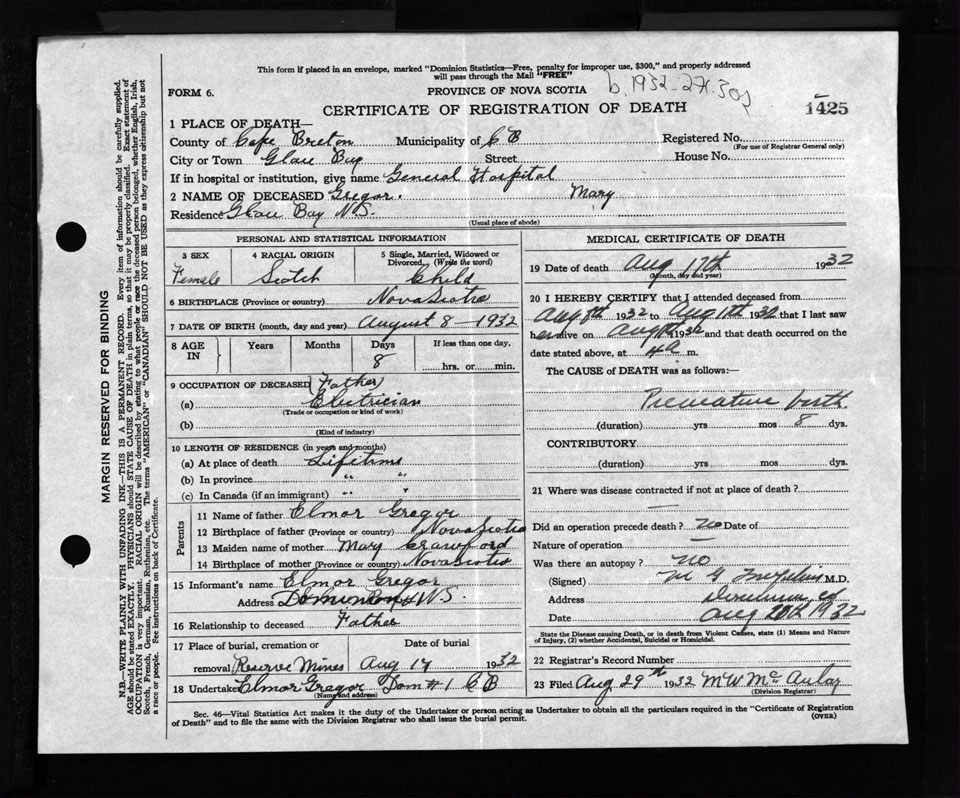 This form if placed in an envelope, marked "Dominion Statistics—Free, penalty for improper use, $300," and properly addressed
will pass through the Mail "FREE"
FORM 6.
PROVINCE OF NOVA SCOTIA
b. 1932-
CERTIFICATE OF REGISTRATION OF DEATH
1425
1 PLACE OF DEATH—
County of Cape Breton Municipality of C B Registered No.
(For use of Registrar General only)
City or Town Glace Bay Street House No.
If in hospital or institution, give name General Hospital
2 NAME OF DECEASED Gregor. Mary
Residence Glace Bay N.S.
(Usual place of abode)
PERSONAL AND STATISTICAL INFORMATION
3 SEX 4 RACIAL ORIGIN 5 Single, Married, Widowed or
Divorced, (Write the word)
Female Scotch Child
6 BIRTHPLACE (Province or country) Nova Scotia
7 DATE OF BIRTH (month, day and year) August 8 - 1932
8 AGE IN Years Months Days If less than one day,
8 hrs. or min.
9 OCCUPATION OF DECEASED (Father)
(a) Electrician
(Trade or occupation or kind of work)
(b)
(Kind of industry)
10 LENGTH OF RESIDENCE (in years and months)
(a) At place of death Lifetime
(b) In province " "
(c) In Canada (if an immigrant) " "
Parents
11 Name of father Elmor Gregor
12 Birthplace of father (Province or country) Nova Scotia
13 Maiden name of mother Mary Crawford
14 Birthplace of mother (Province or country) Nova Scotia
15 Informant's name Elmor Gregor
Address Dominion N.S.
16 Relationship to deceased Father
17 Place of burial, cremation or Date of burial
removal Reserve Mines Aug 17 1932
18 Undertaker Elmor Gregor Dom #1 C B
(Name and address)
MEDICAL CERTIFICATE OF DEATH
19 Date of death Aug 17th 1932
(Month, day and year)
20 I HEREBY CERTIFY that I attended deceased from
Aug 8th 1932 to Aug 1932 that I last saw
her alive on Aug 1932 and that death occurred on
date stated above, at 4 a m.
The CAUSE of DEATH was as follows:—
Premature birth.
(duration) yrs mos 8 dys.
CONTRIBUTORY
(duration) yrs. mos. dys.
21 Where was disease contracted if not at place of death?
—
Did an operation precede death? no Date of
Nature of operation —
Was there an autopsy? no
(Signed) M.D.
Address Dominion
Date Aug 20th 1932
State the Disease causing Death, or in death from Violent Causes, state (1) Means and Nature
of Injury, (2) whether Accidental, Suicidal or Homicidal.
22 Registrar's Record Number
23 Filed Aug 29th 1932 M W McAulay
(Division Registrar)
Sec. 46—Vital Statistics Act makes it the duty of the Undertaker or person acting as Undertaker to obtain all the particulars required in the "Certificate of Registration
of Death" and to file the same with the Division Registrar who shall issue the burial permit.
(OVER)
MARGIN RESERVED FOR BINDING
N.B.—WRITE PLAINLY WITH UNFADING INK—THIS IS A PERMANENT RECORD. Every item of information should be carefully supplied.
AGE should be stated EXACTLY. PHYSICIANS should STATE CAUSE OF DEATH in plain terms, so that it may be properly classified. Exact statement of
OCCUPATION is very important. RACIAL ORIGIN will be described by stating to what people or race the deceased person belonged, whether English, Irish,
Scotch, French, German, Russian, Ruthenian, etc. The terms "AMERICAN" or "CANADIAN" SHOULD NOT BE USED as they express citizenship but not
a race or people. See instructions on back of Certificate.